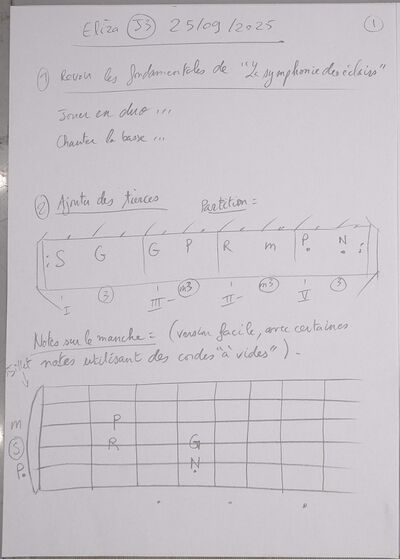 Eliza J3 25/09/2025 1
1 Revoir les fondamentales de "La symphonie des éclairs"
Jouer en duo ...
Chanter la basse ...
2 Ajouter des tierces Partition =
S G G P R m P. N.
I 3 III- m3 II- m3 V 3
Notes sur le manche = (version facile, avec certaines
notes utilisant des cordes "à vides").
Sillet
m P
S R G
P. N.